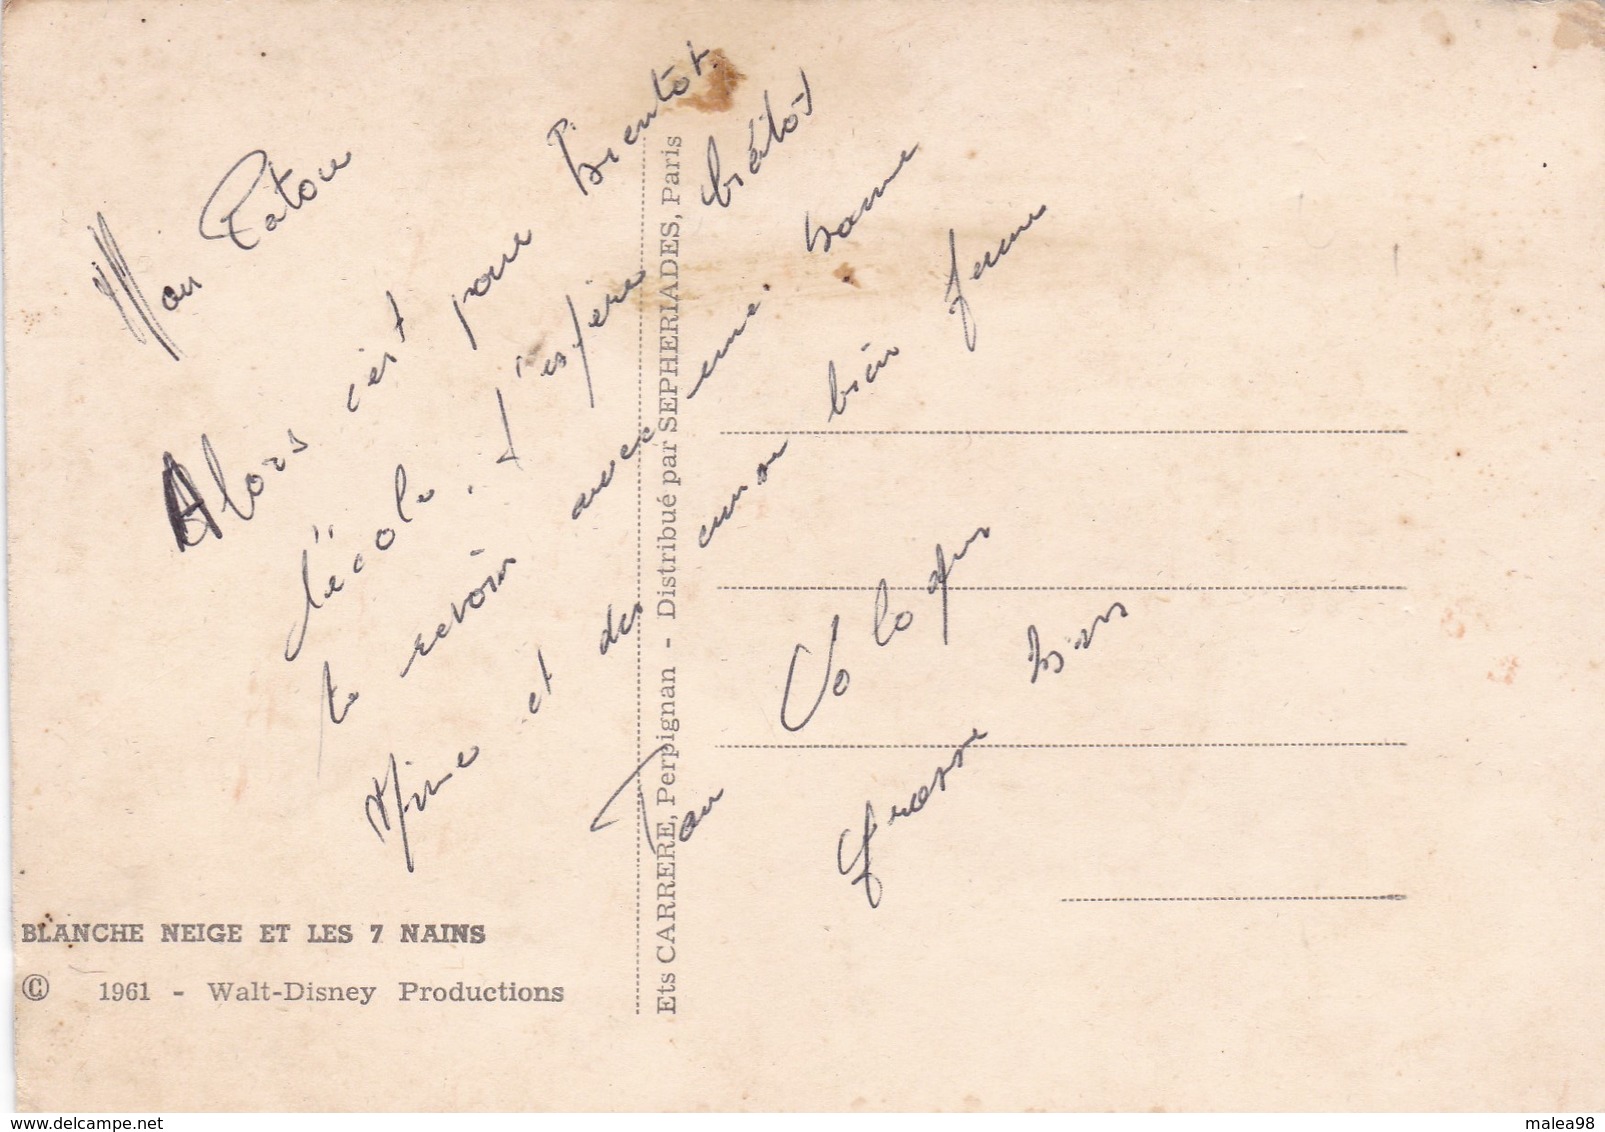 Mon Patou
Alors c'est pour bientôt
l'école. J'espère bientôt
te revoir avec une bonne
mine et des
bien ferme
Ton
grosse bises
BLANCHE NEIGE ET LES 7 NAINS
© 1961 - Walt-Disney Productions
Ets CARRERE, Perpignan - Distribué par SEPHERIADES, Paris
delcampe.net
malea98